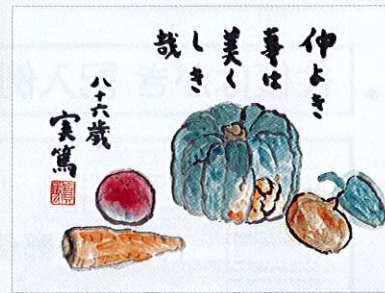 仲よき
事は
美く
しき
哉
八十六歳
実篤